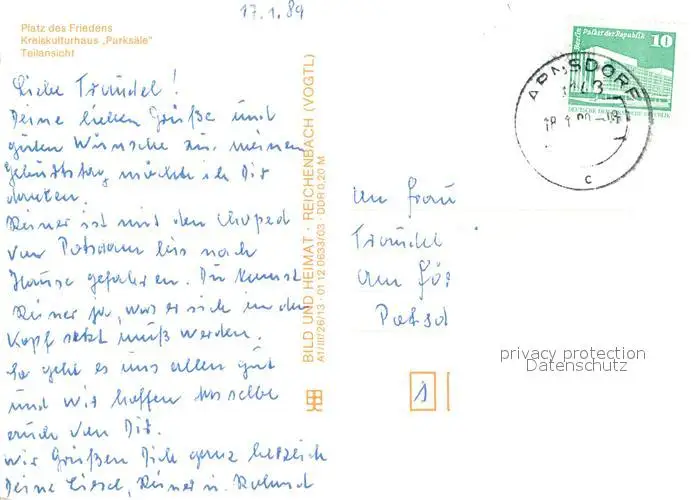 17.1.89
Platz des Friedens
Kreiskulturhaus „Parksäle"
Teilansicht
Liebe Traudel!
Deine lieben Grüße und
guten Wünsche zu meinem
Geburtstag möchte ich Dir
danken.
Reiner ist mit dem Moped
von Potsdam bis nach
Hause gefahren. Du kennst
Reiner ja, was er sich in den
Kopf setzt muß werden.
So geht es uns allen gut
und wir hoffen dasselbe
auch von Dir.
Wir Grüßen Dich ganz herzlich
Deine Liesel, Reiner u. Roland
BILD UND HEIMAT · REICHENBACH (VOGTL)
A1/III/26/13 · 01 12 0633/03 · DDR 0,20 M
Berlin Palast der Republik
10
DEUTSCHE DEMOKRATISCHE REPUBLIK
ARNSDORF
c
An Frau
Traudel
Am
Potsd
1
privacy protection
Datenschutz